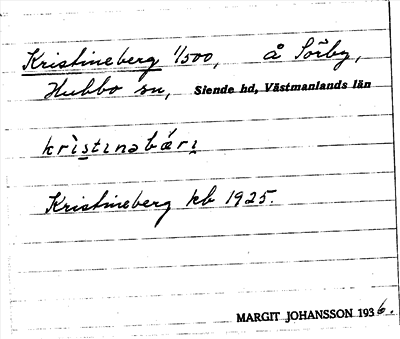 Kristineberg 1/500, å Sörby,
Hubbo sn, Siende hd, Västmanlands län
krìstinəbǽrị
Kristineberg kb 1925.
MARGIT JOHANSSON 1936.